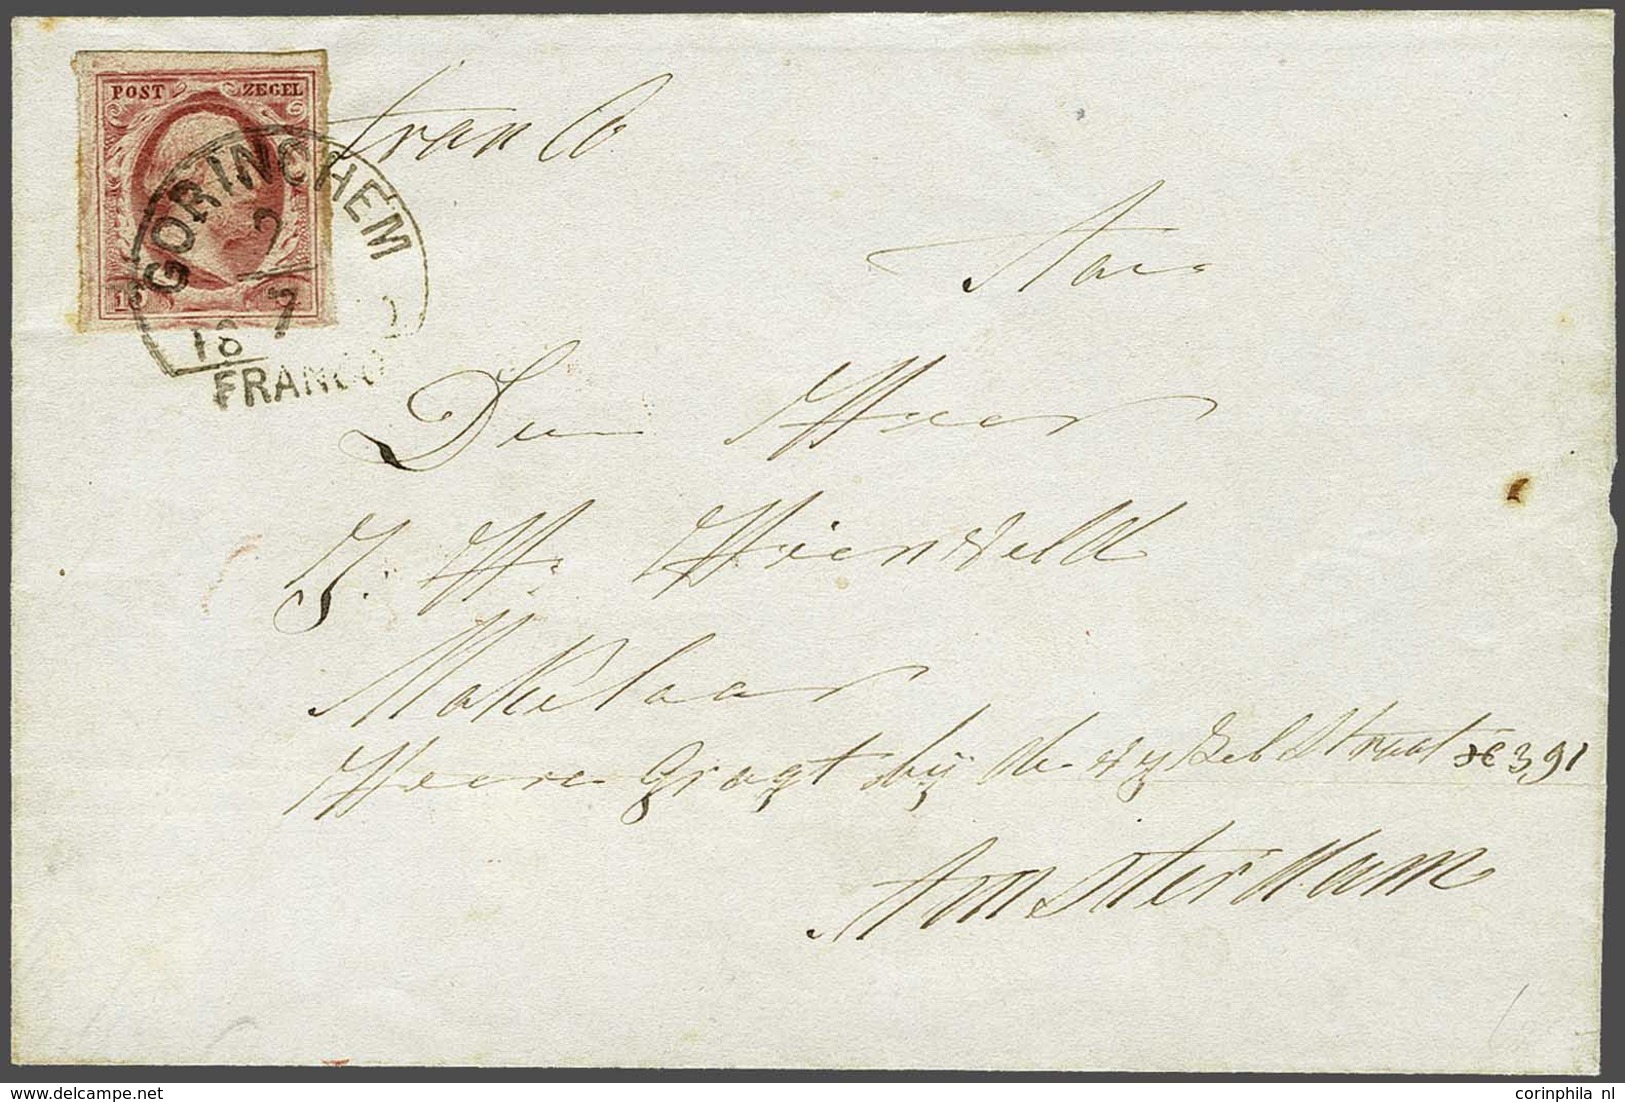 POST ZEGEL
10
GORINCHEM
2
7
18
FRANCO
franco
Aan
Den Heer
J. H. Hienveld
Makelaar
Heere Gragt bij de Wykelstraat 391
Amsterdam
corinphila nl